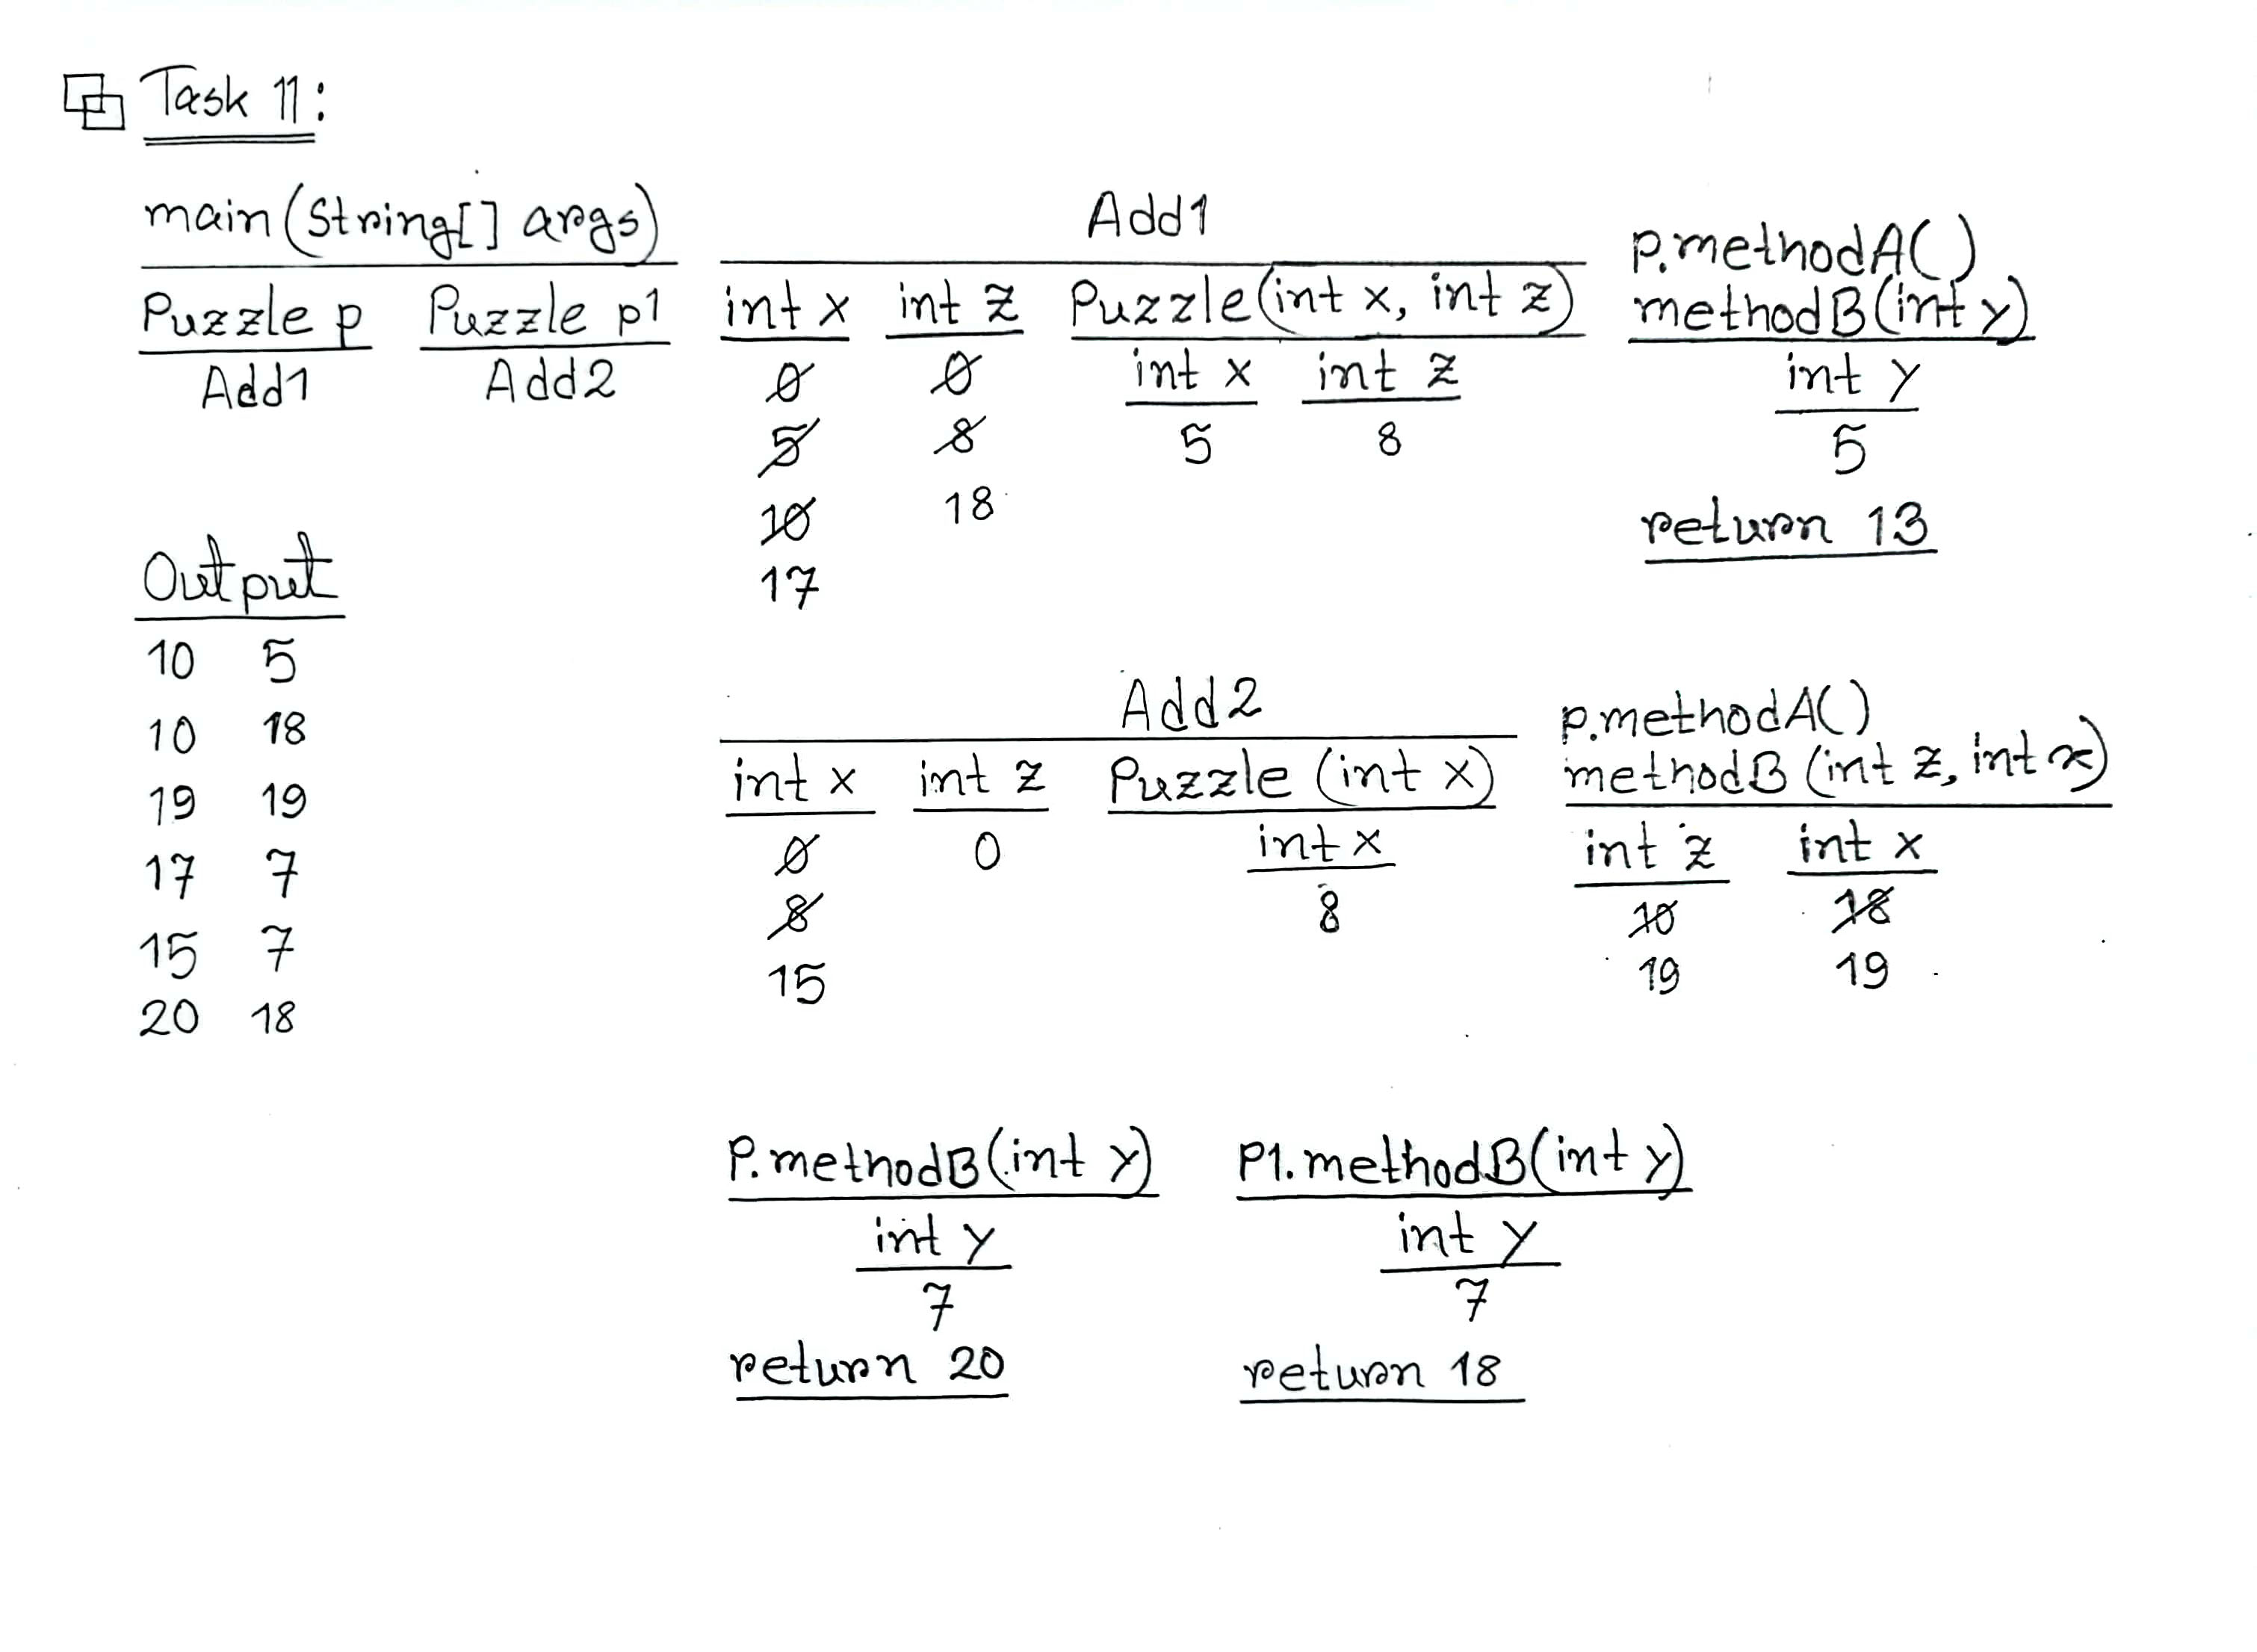 Task 11:
main(String[] args)
Puzzle p Puzzle p1
Add1 Add2
Output
10 5
10 18
19 19
17 7
15 7
20 18
Add1
int x int z Puzzle(int x, int z)
0 0 int x int z
5 8 5 8
10 18
17
p.methodA()
methodB(int y)
int y
5
return 13
Add2
int x int z Puzzle (int x)
0 0 int x
8 8
15
p.methodA()
methodB (int z, int x)
int z int x
10 18
19 19
P.methodB(int y)
int y
7
return 20
P1.methodB(int y)
int y
7
return 18